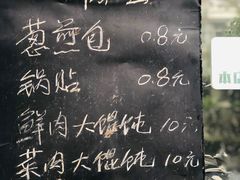 葱煎包 0.8元
锅贴 0.8元
鲜肉大馄饨 10元
菜肉大馄饨 10元
本店